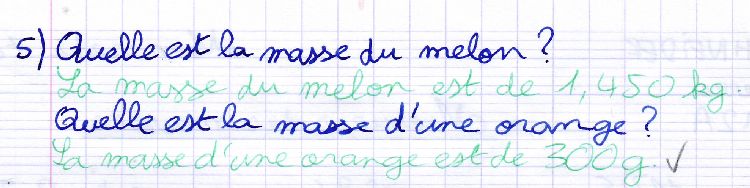 5) Quelle est la masse du melon ?
La masse du melon est de 1,450 kg.
Quelle est la masse d'une orange ?
La masse d'une orange est de 300g. ✓